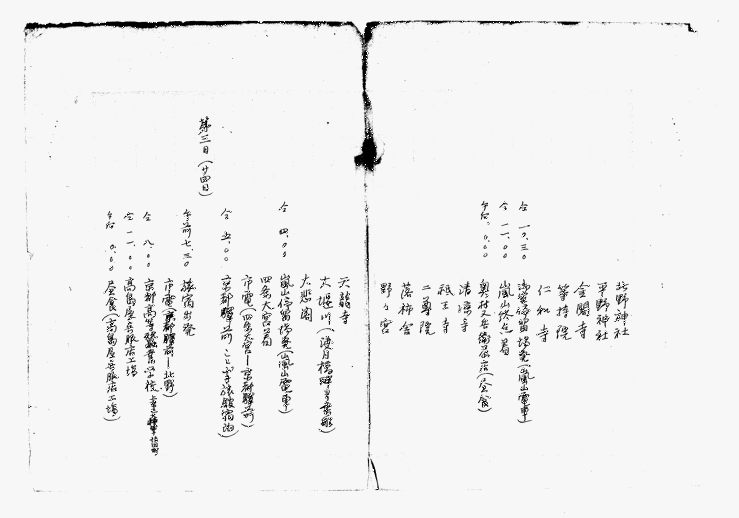 北野神社
平野神社
金閣寺
等持院
仁和寺
仝 一〇.三〇 御室停留場発(嵐山電車)
仝 一一.〇〇 嵐山終点着
午后 〇.〇〇 (昼食)
清涼寺
祇王寺
二尊院
落柿舎
野々宮
天龍寺
大堰川(渡月橋
大悲閣
仝 四.〇〇 嵐山停留場発(嵐山電車)
四条大宮着
市電(四条大宮―京都驛前)
仝 五.〇〇 京都驛前 ことぶき旅館宿泊)
第三日(廿四日)
午前 七.三〇 旅宿出発
市電(京都驛前―北野)
仝 八.〇〇 京都高等蚕業学校
仝 一一.〇〇 高島屋呉服店工場
午后 〇.〇〇 昼食(高島屋呉服店工場)